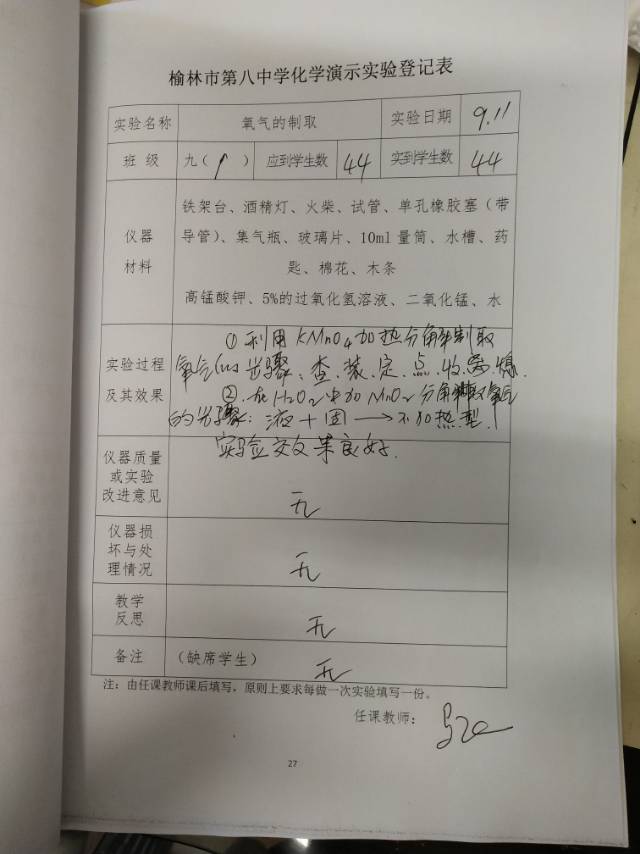 榆林市第八中学化学演示实验登记表
实验名称 氧气的制取 实验日期 9.11
班 级 九( ) 应到学生数 44 实到学生数 44
仪器
材料
铁架台、酒精灯、火柴、试管、单孔橡胶塞（带
导管）、集气瓶、玻璃片、10ml量筒、水槽、药
匙、棉花、木条
高锰酸钾、5%的过氧化氢溶液、二氧化锰、水
实验过程
及其效果
①利用KMnO4加热分解制取
氧气 步骤、查.装.定.点.收.离.熄.
②.在H2O2中加MnO2分解制取氧气
的步骤：液+固→不加热型.
实验效果良好.
仪器质量
或实验
改进意见
无
仪器损
坏与处
理情况
无
教学
反思
无
备注 （缺席学生） 无
注：由任课教师课后填写，原则上要求每做一次实验填写一份。
任课教师：
27